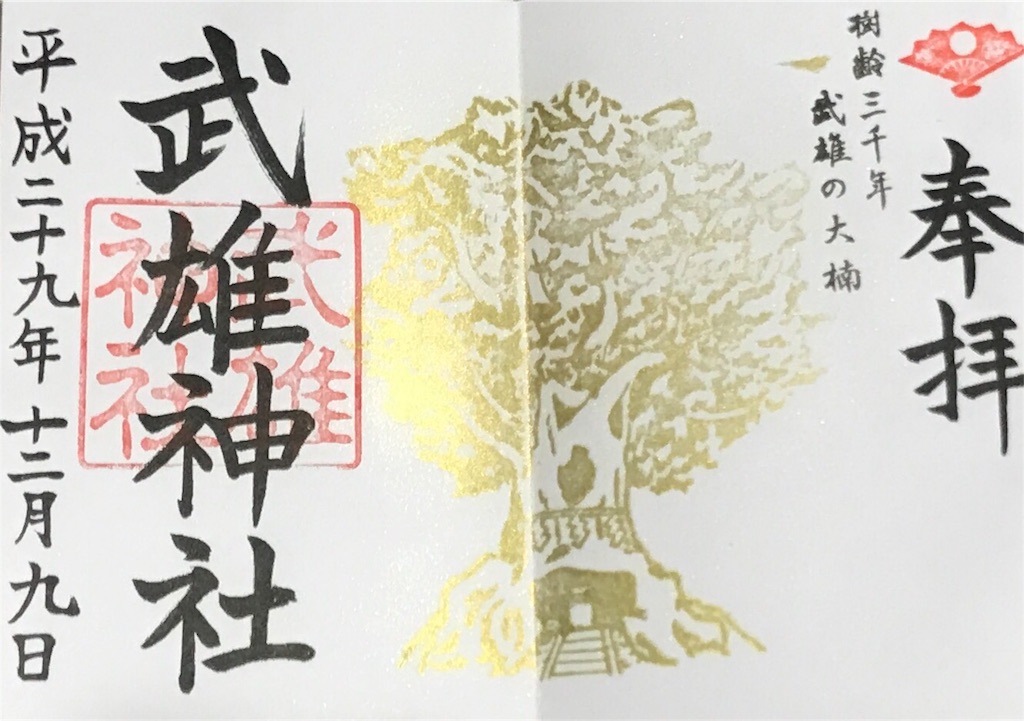 奉拝
樹齢三千年
武雄の大楠
武雄神社
武雄神社
平成二十九年十二月九日